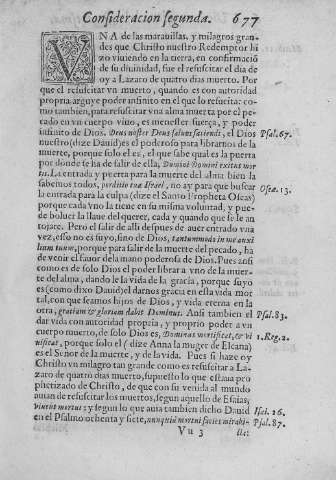 Consideracion segunda. 677
VNA de las marauillas, y milagros gran-
des que Christo nuestro Redemptor hi
zo viuiendo en la tierra, en confirmaciõ
de su diuinidad, fue el resucitar el dia de
oy a Lazaro de quatro dias muerto. Por
que el resucitar vn muerto, quando es con autoridad
propria arguye poder infinito en el que lo resucita: co-
mo tambien, para resucitar vna alma muerta por el pe-
cado en vn cuerpo viuo, es menester fuerça, y poder
infinito de Dios. Deus noster Deus saluos faciendi, el Dios Psal.67.
nuestro (dize Dauid) es el poderoso para librarnos de la
muerte, porque solo el es, el que sabe qual es la puerta
por donde se ha de salir de ella, Domini Domini exitus mor
tis. La entrada y puerta para la muerte del alma bien la
sabemos todos, perditio tua Israel, no ay para que buscar Oseæ.13.
la entrada para la culpa (dize el Santo Propheta Oseas)
porque cada vno la tiene en su misma voluntad, y pue-
de boluer la llaue del querer, cada y quando que se le an
tojare. Pero el salir de alli despues de auer entrado vna
vez, esso no es suyo, sino de Dios, tantummodo in me auxi
lium tuum, porque para salir de la muerte del pecado, ha
de venir el fauor de la mano poderosa de Dios. Pues ansi
como es de solo Dios el poder librar a vno de la muer-
te del alma, dando le la vida de la gracia, porque suyo
es (como dixo Dauid) el darnos gracia en esta vida mor
tal, con que seamos hijos de Dios, y vida eterna en la
otra, gratiam & gloriam dabit Dominus. Ansi tambien el Psal.83.
dar vida con autoridad propria, y proprio poder a vn
cuerpo muerto, de solo Dios es, Dominus mortificat, & vi 1.Reg.2.
uificat, porque solo el (dize Anna la muger de Elcana)
es el Señor de la muerte, y de la vida. Pues si haze oy
Christo vn milagro tan grande como es resucitar a La-
zaro de quatro dias muerto, supuesto lo que estaua pro
phetizado de Christo, de que con su venida al mundo
auian de resucitar los muertos, segun aquello de Esaias,
viuent mortui; y segun lo que auia tambien dicho Dauid Isai.26.
en el Psalmo ochenta y siete, nunquid mortuis facies mirabi- Psal.87.
Vu 3